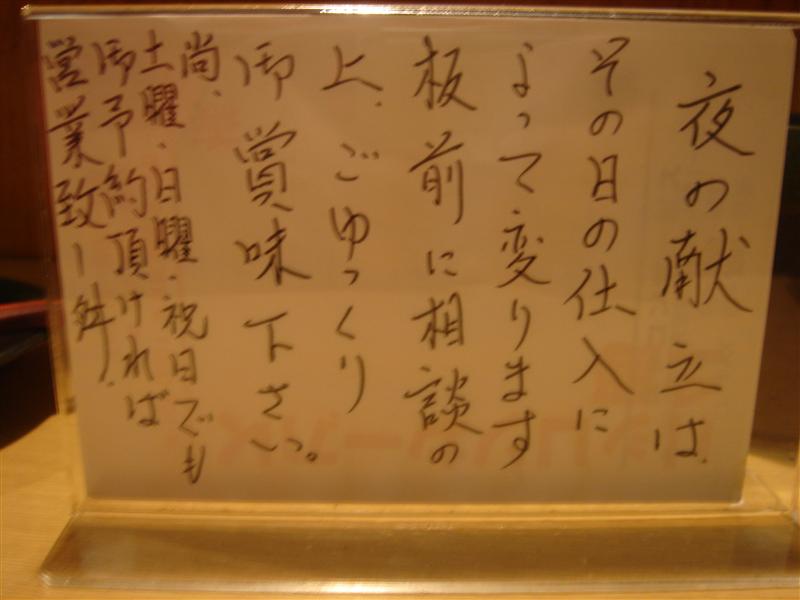 夜の献立は、
その日の仕入に
よって変ります
板前に相談の
上、ごゆっくり
御賞味下さい。
尚、
土曜・日曜・祝日でも
御予約頂ければ
営業致し舛。